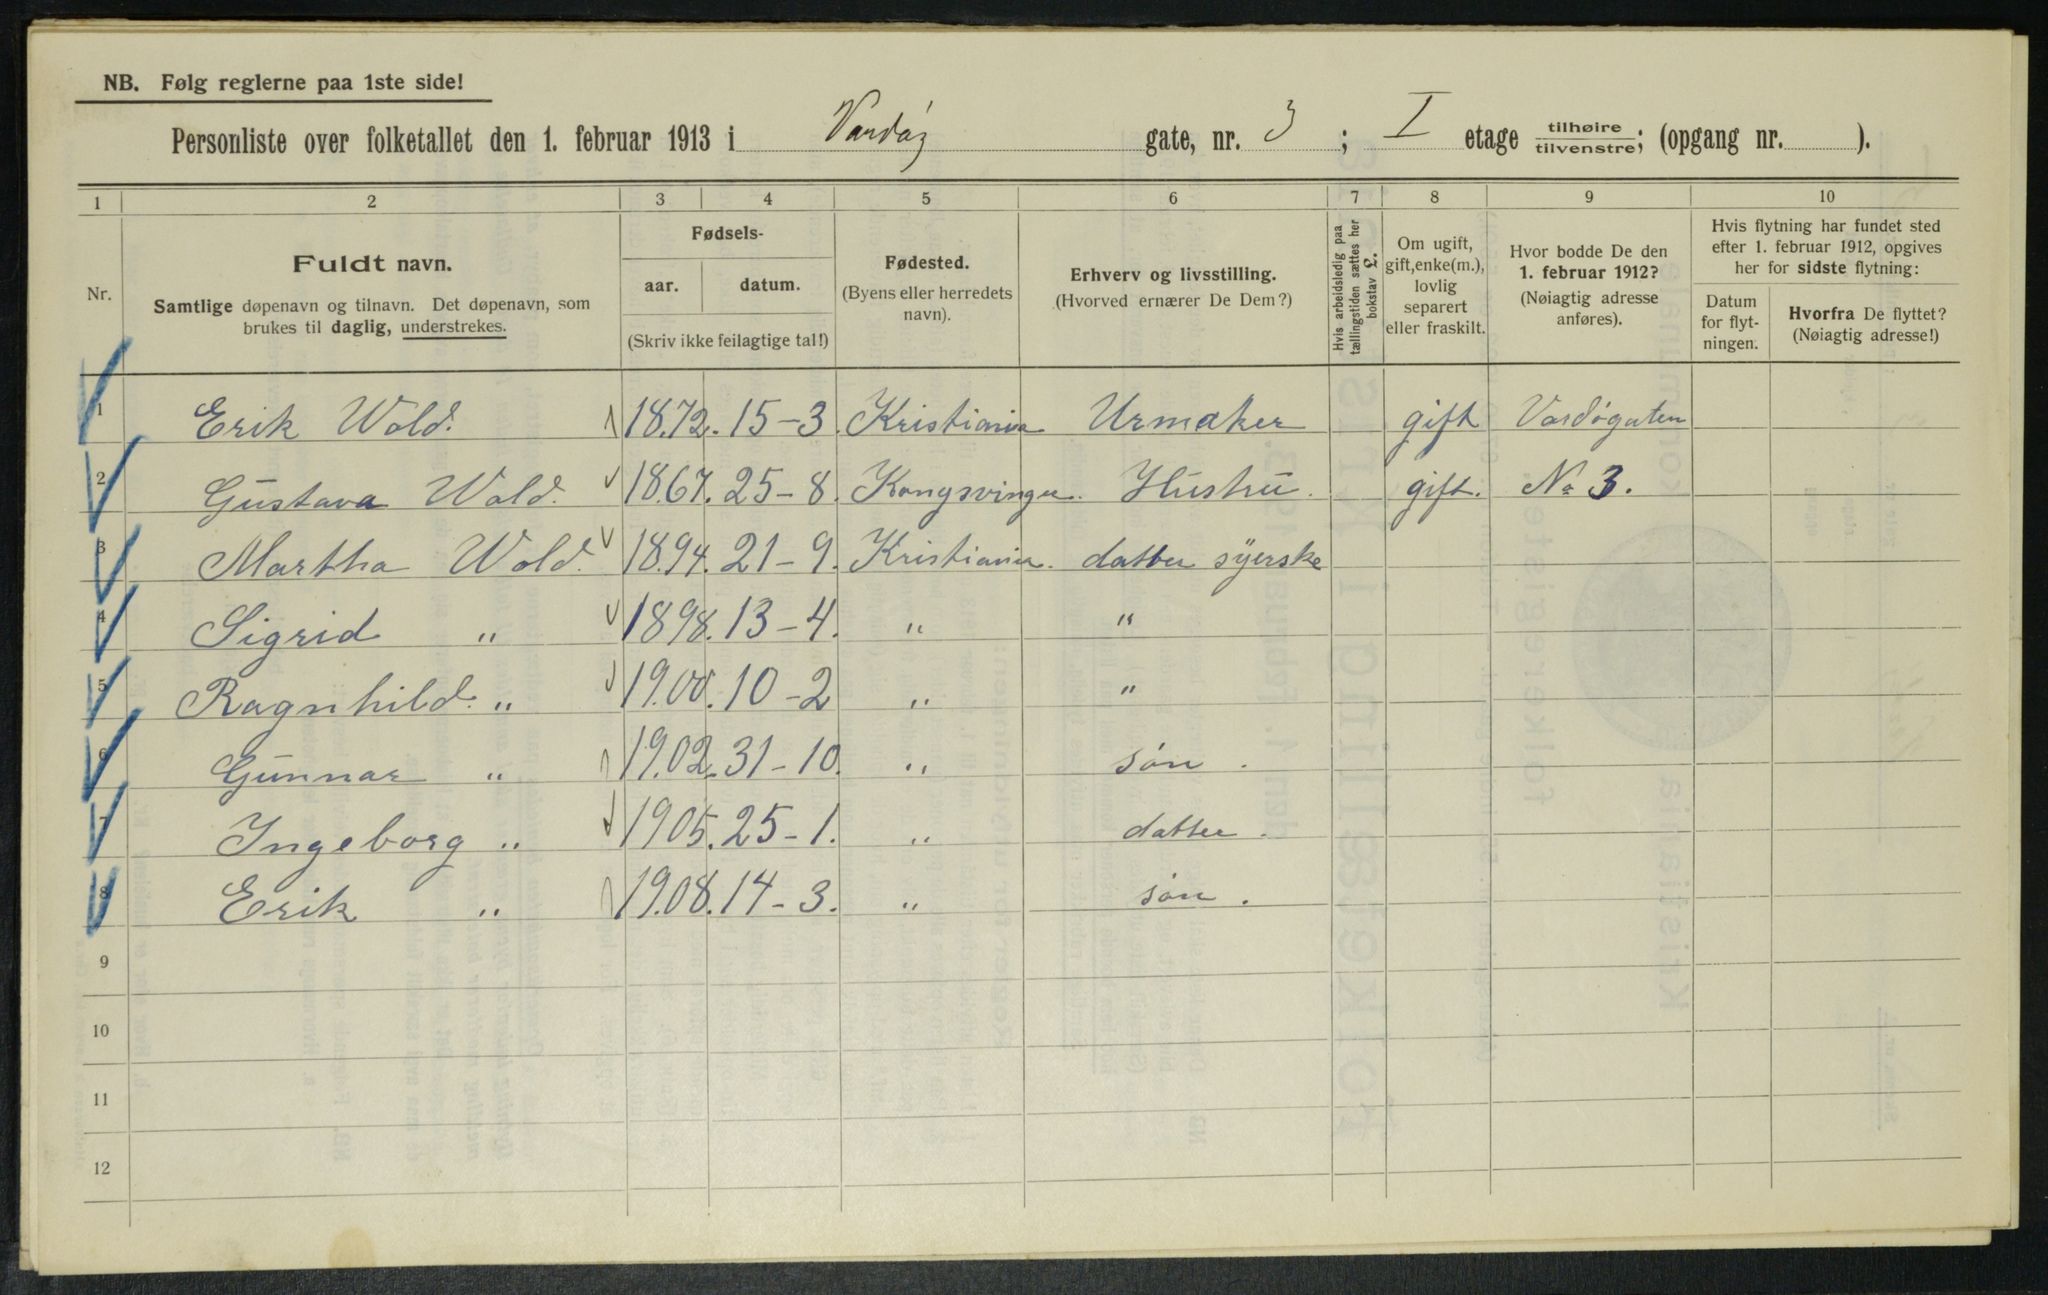 NB. Følg reglerne paa 1ste side!
Personliste over folketallet den 1. februar 1913 i Vardøg gate, nr. 3; I etage tilhøire/tilvenstre; (opgang nr. ).
1 2 3 4 5 6 7 8 9 10
Nr.
Fuldt navn.
Samtlige døpenavn og tilnavn. Det døpenavn, som
brukes til daglig, understrekes.
Fødsels-
aar. datum.
(Skriv ikke feilagtige tal!)
Fødested.
(Byens eller herredets
navn).
Erhverv og livsstilling.
(Hvorved ernærer De Dem?)
Hvis arbeidsledig paa
tællingstiden sættes her
bokstav L.
Om ugift,
gift, enke(m.),
lovlig
separert
eller fraskilt.
Hvor bodde De den
1. februar 1912?
(Nøiagtig adresse
anføres).
Hvis flytning har fundet sted
efter 1. februar 1912, opgives
her for sidste flytning:
Datum
for flyt-
ningen.
Hvorfra De flyttet?
(Nøiagtig adresse!)
1 Erik Wold. 1872. 15-3. Kristiania Urmaker gift Vardøgaten
2 Gustava Wold. 1867. 25-8. Kongsvinger. Hustru. gift. No 3.
3 Martha Wold. 1894. 21-9. Kristiania. datter syerske
4 Sigrid " 1898. 13-4. " "
5 Ragnhild. " 1900. 10-2 " "
6 Gunnar " 1902. 31-10. " søn.
7 Ingeborg " 1905. 25-1. " datter.
8 Erik " 1908. 14-3. " søn.
9
10
11
12